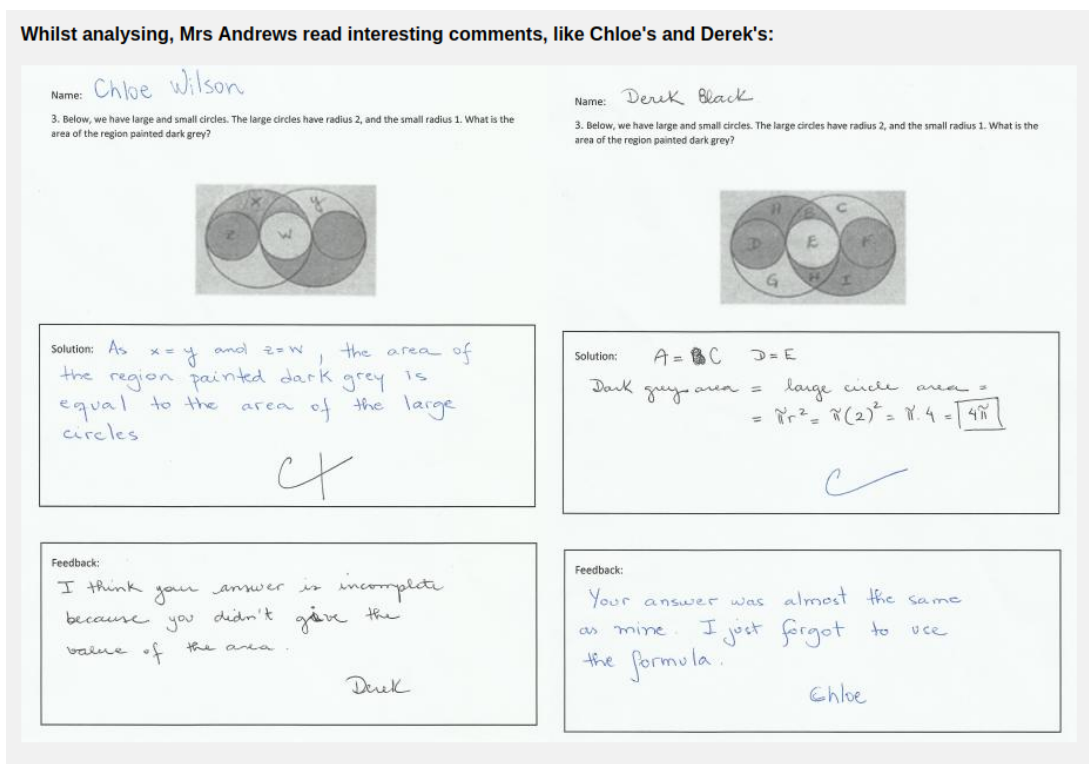 Whilst analysing, Mrs Andrews read interesting comments, like Chloe's and Derek's:
Name: Chloe Wilson
3. Below, we have large and small circles. The large circles have radius 2, and the small radius 1. What is the
area of the region painted dark grey?
x
y
z
w
Solution: As x = y and z = w, the area of
the region painted dark grey is
equal to the area of the large
circles
Feedback:
I think your answer is incomplete
because you didn't give the
value of the area.
Derek
Name: Derek Black
3. Below, we have large and small circles. The large circles have radius 2, and the small radius 1. What is the
area of the region painted dark grey?
A
B
C
D
E
F
G
H
I
Solution: A = C D = E
Dark grey area = large circle area =
= πr² = π(2)² = π.4 = 4π
C
Feedback:
Your answer was almost the same
as mine. I just forgot to use
the formula.
Chloe